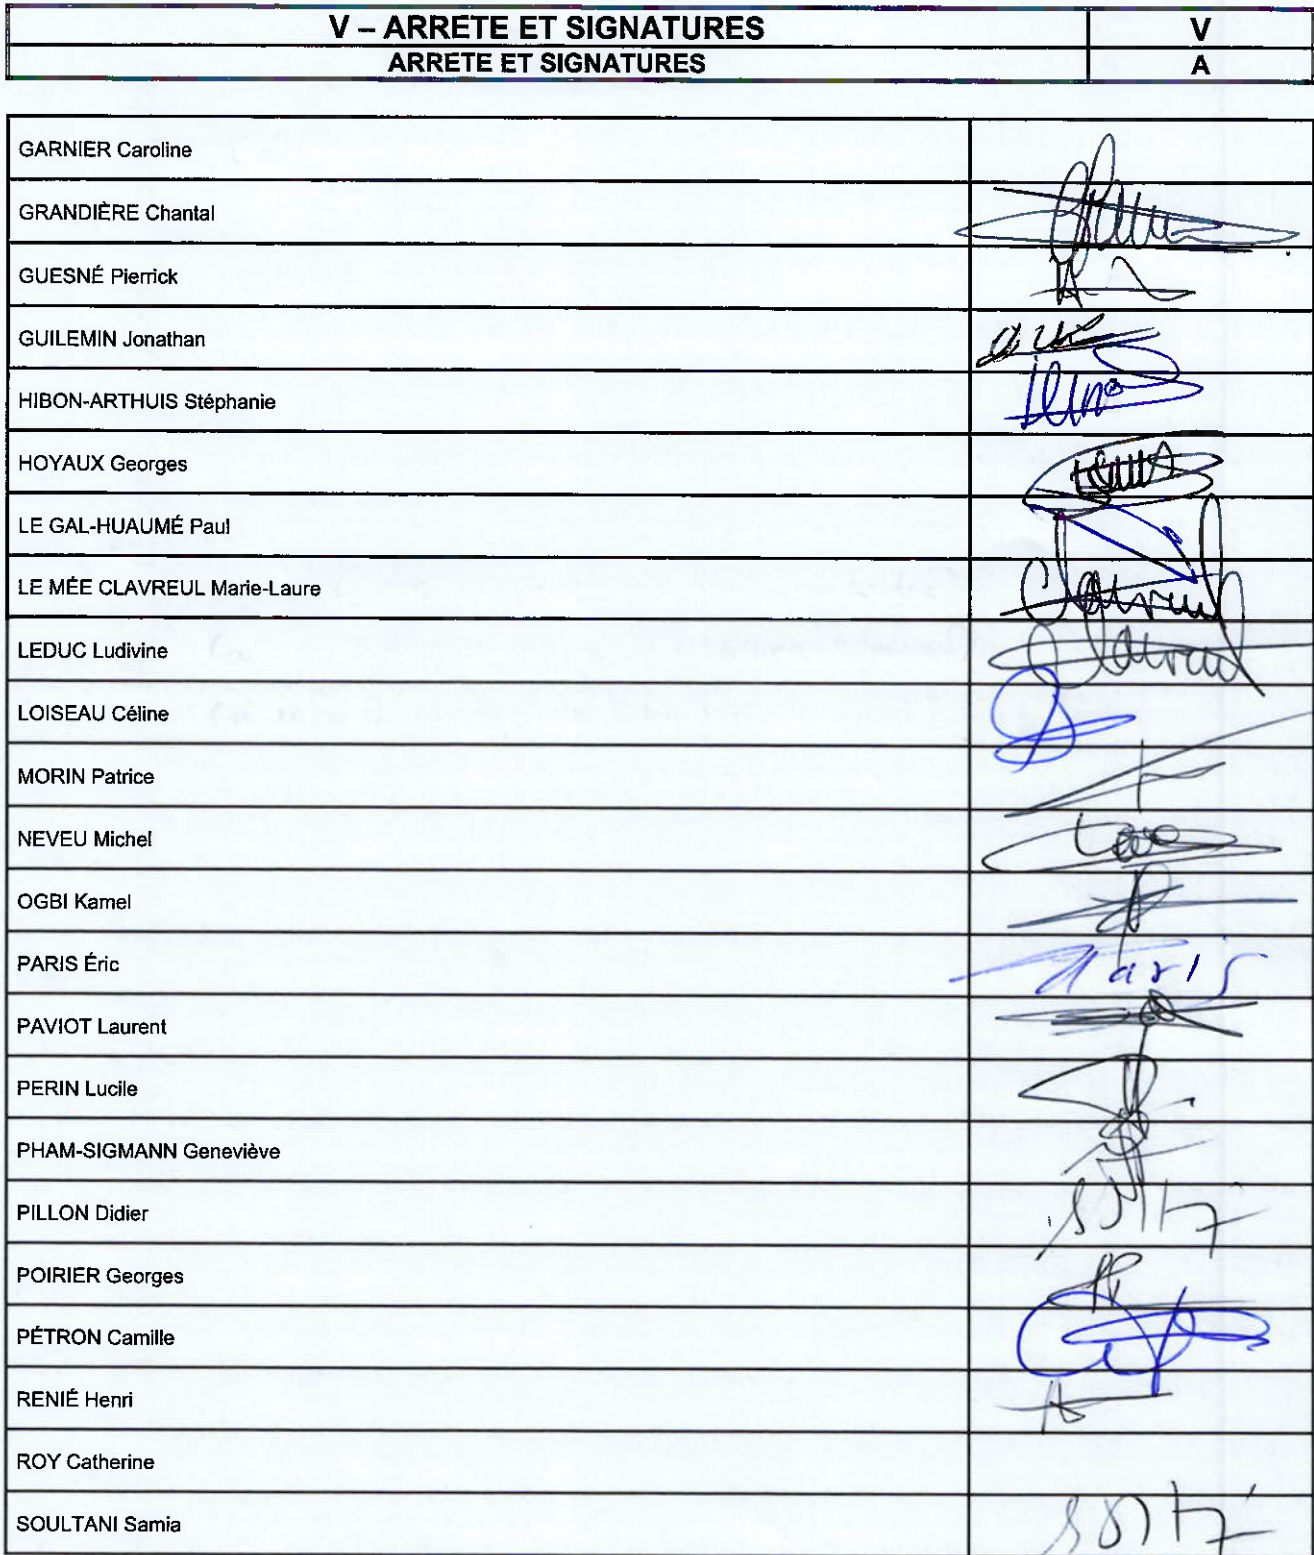 V – ARRETE ET SIGNATURES V
ARRETE ET SIGNATURES A
GARNIER Caroline
GRANDIÈRE Chantal
GUESNÉ Pierrick
GUILEMIN Jonathan
HIBON-ARTHUIS Stéphanie
HOYAUX Georges
LE GAL-HUAUMÉ Paul
LE MÉE CLAVREUL Marie-Laure Clavreul
LEDUC Ludivine Clavreul
LOISEAU Céline
MORIN Patrice
NEVEU Michel
OGBI Kamel
PARIS Éric Paris
PAVIOT Laurent
PERIN Lucile
PHAM-SIGMANN Geneviève
PILLON Didier sorti
POIRIER Georges
PÉTRON Camille
RENIÉ Henri
ROY Catherine
SOULTANI Samia sorti